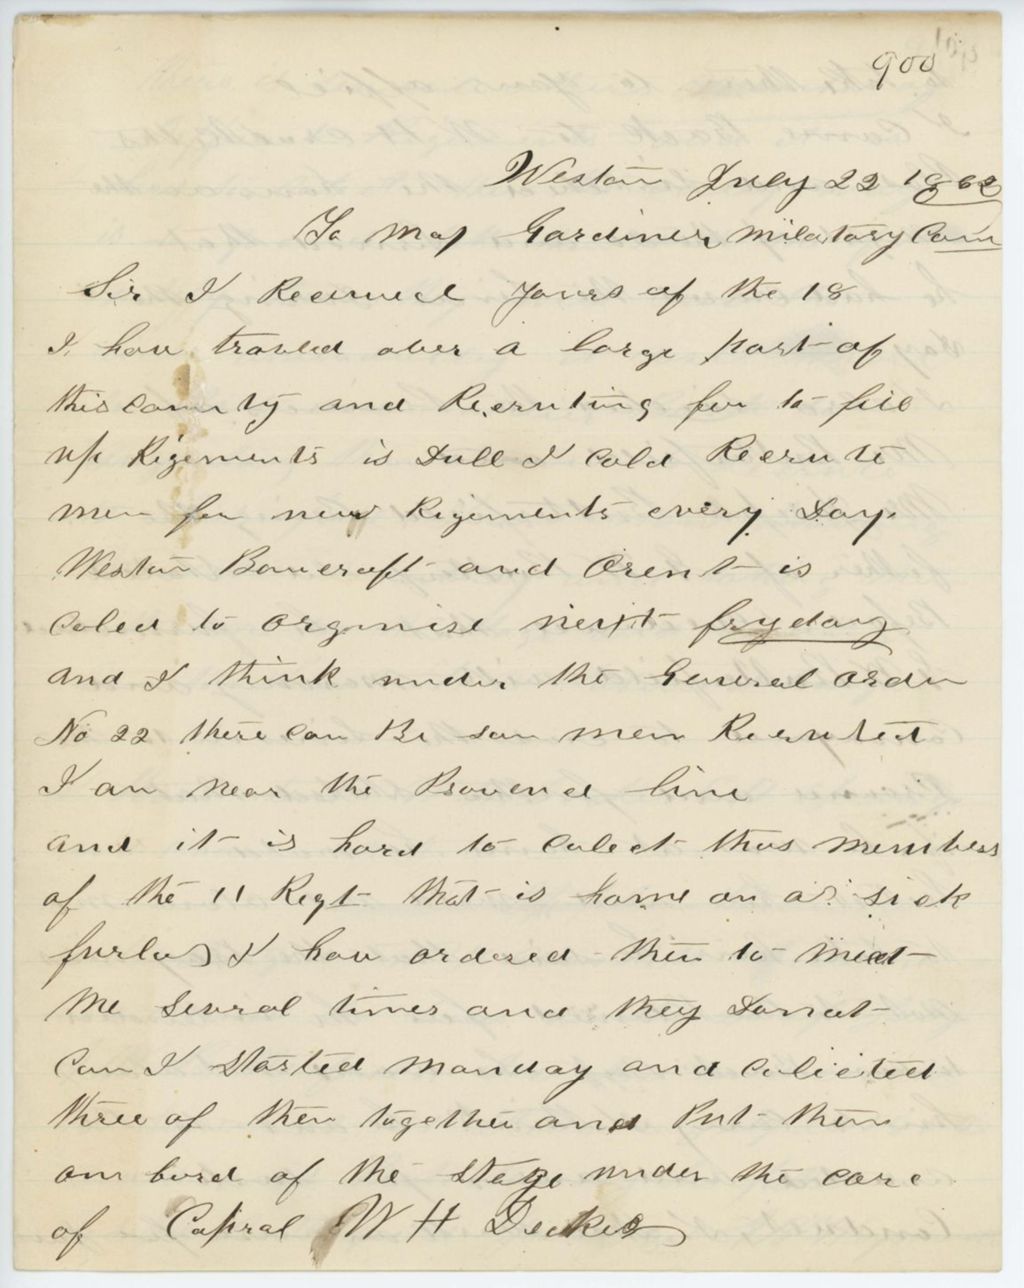 900
Weston July 22 1862
To Maj Gardiner Milatary Com
Sir I Received yours of the 18
I have travled over a large part of
this county and Recruting for to fill
up Rigements is Dull I cold Recrute
men for new Rigements every Day.
Weston Bancroft and Orent is
caled to organise next fryday
and I think under the General order
No 22 there can Be som men Recruted
I am near the Provence line
and it is hard to colect thos members
of the 11 Regt that is home on a sick
furlo I have ordered them to meet
me several times and they Donot
com I started Monday and colected
three of them together and Put them
on bord of the stage under the care
of Capral W H Decker